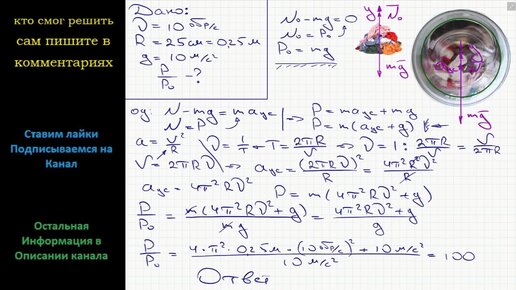 кто смог решить
сам пишите в
комментариях
Ставим лайки
Подписываемся на
Канал
Остальная
Информация в
Описании канала
Дано:
ν = 10 об/с
R = 25см = 0,25 м
g = 10 м/с²
P/P₀ - ?
N₀ - mg = 0
N₀ = P₀
P₀ = mg
y N̄₀
mḡ
N̄
mḡ
оу: N - mg = ma_цс | => P = ma_цс + mg
N = P | P = m(a_цс + g)
a = V²/R ν = 1/T → T = 2πR/V => ν = 1 : 2πR/V = V/2πR
V = 2πRν => a_цс = (2πRν)²/R = 4π²R²ν²/R
a_цс = 4π²Rν² P = m(4π²Rν² + g)
P/P₀ = m(4π²Rν² + g)/mg = (4π²Rν² + g)/g
P/P₀ = (4·π²·0,25м·(10 об/с)² + 10 м/с²)/10 м/с² = 100
Ответ